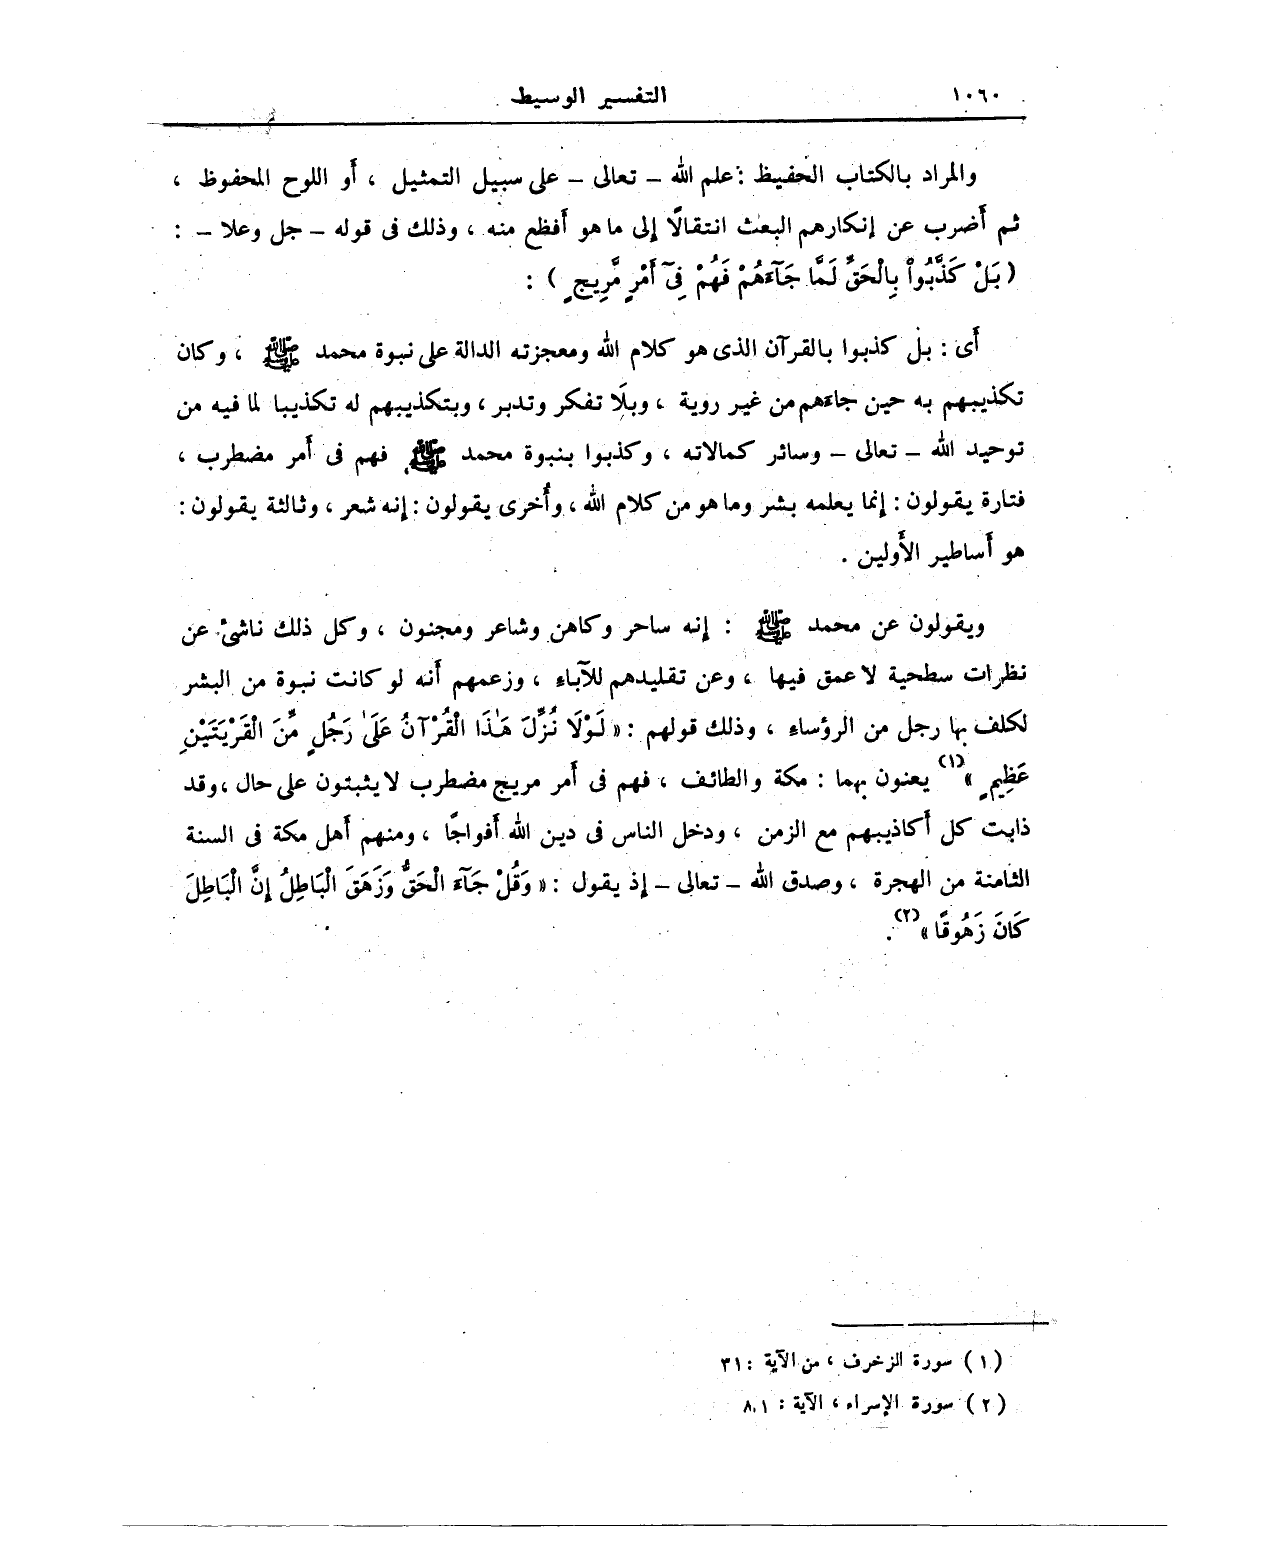 ١٠٦٠ التفسير الوسيط
والمراد بالكتاب الحفيظ : علم الله - تعالى - على سبيل التمثيل ، أو اللوح المحفوظ ،
ثم أضرب عن إنكارهم البعث انتقالًا إلى ما هو أفظع منه ، وذلك فى قوله - جل وعلا - :
( بَلْ كَذَّبُواْ بِالْحَقِّ لَمَّا جَآءَهُمْ فَهُمْ فِىٓ أَمْرٍ مَّرِيجٍ ) :
أى : بل كذبوا بالقرآن الذى هو كلام الله ومعجزته الدالة على نبوة محمد ﷺ ، وكان
تكذيبهم به حين جاءهم من غير روية ، وبلَا تفكر وتدبر ، وبتكذيبهم له تكذيبا لما فيه من
توحيد الله - تعالى - وسائر كمالاته ، وكذبوا بنبوة محمد ﷺ فهم فى أمر مضطرب ،
فتارة يقولون : إنما يعلمه بشر وما هو من كلام الله ، وأُخرى يقولون : إنه شعر ، وثالثة يقولون :
هو أساطير الأولين .
ويقولون عن محمد ﷺ : إنه ساحر وكاهن وشاعر ومجنون ، وكل ذلك ناشئ عن
نظرات سطحية لا عمق فيها ، وعن تقليدهم للآباء ، وزعمهم أنه لو كانت نبوة من البشر
لكلف بها رجل من الرؤساء ، وذلك قولهم : « لَوْلَا نُزِّلَ هَٰذَا الْقُرْآنُ عَلَىٰ رَجُلٍ مِّنَ الْقَرْيَتَيْنِ
عَظِيمٍ » (١) يعنون بهما : مكة والطائف ، فهم فى أمر مريج مضطرب لا يثبتون على حال ، وقد
ذابت كل أكاذيبهم مع الزمن ، ودخل الناس فى دين الله أفواجًا ، ومنهم أهل مكة فى السنة
الثامنة من الهجرة ، وصدق الله - تعالى - إذ يقول : « وَقُلْ جَآءَ الْحَقُّ وَزَهَقَ الْبَاطِلُ إِنَّ الْبَاطِلَ
كَانَ زَهُوقًا » (٢) .
( ١ ) سورة الزخرف ، من الآية : ٣١
( ٢ ) سورة الإسراء ، الآية : ٨١